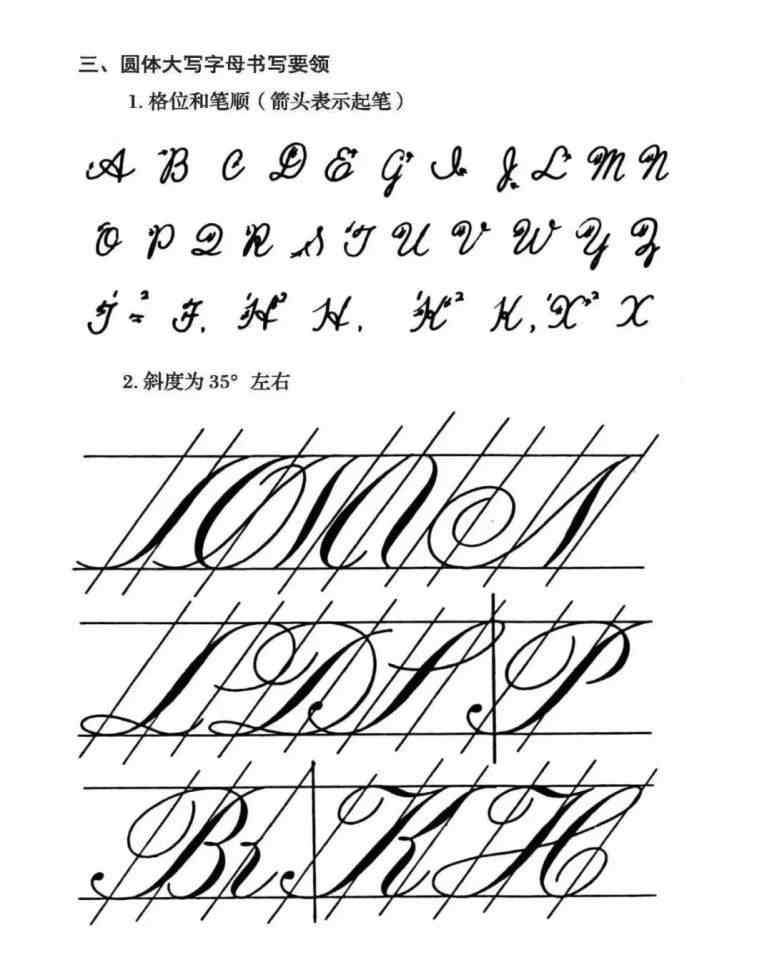 三、圆体大写字母书写要领
1. 格位和笔顺（箭头表示起笔）
A B C D E G I J L M N
O P Q R S T U V W Y Z
1 2 F. 1 2 H H. 1 2 K K, 1 2 X X
2. 斜度为 35° 左右
L D S P
B r K H